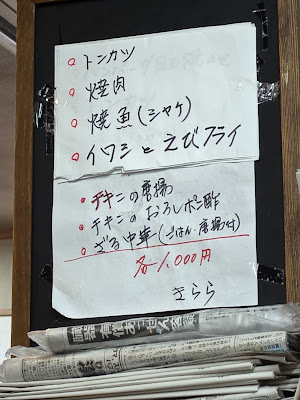 ○ トンカツ
○ 焼肉
○ 焼魚(シャケ)
○ イワシとえびフライ
• チキンの唐揚
• チキンのおろしポン酢
○ ざる中華(ごはん・唐揚付)
各-1,000円
きらら